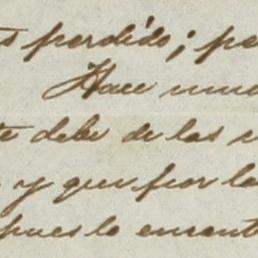 perdido; pe
Hace
te debe de las
y que por la
pues lo encont